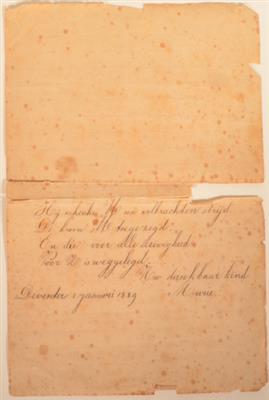 Hij schenke U na volbrachten strijd
De kroon U toegezegd.
En die voor alle eeuwigheid
Voor U is weggelegd.
Uw dankbaar kind
Deventer 1 januari 1889 Marie.